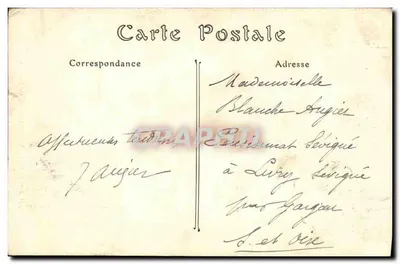 Carte Postale
Correspondance
Adresse
Mademoiselle
Blanche Augier
Pensionnat Sévigné
à Livry Sévigné
par Gargan
S. et Oise
Affectueuses
J Augier
CPAPHIL